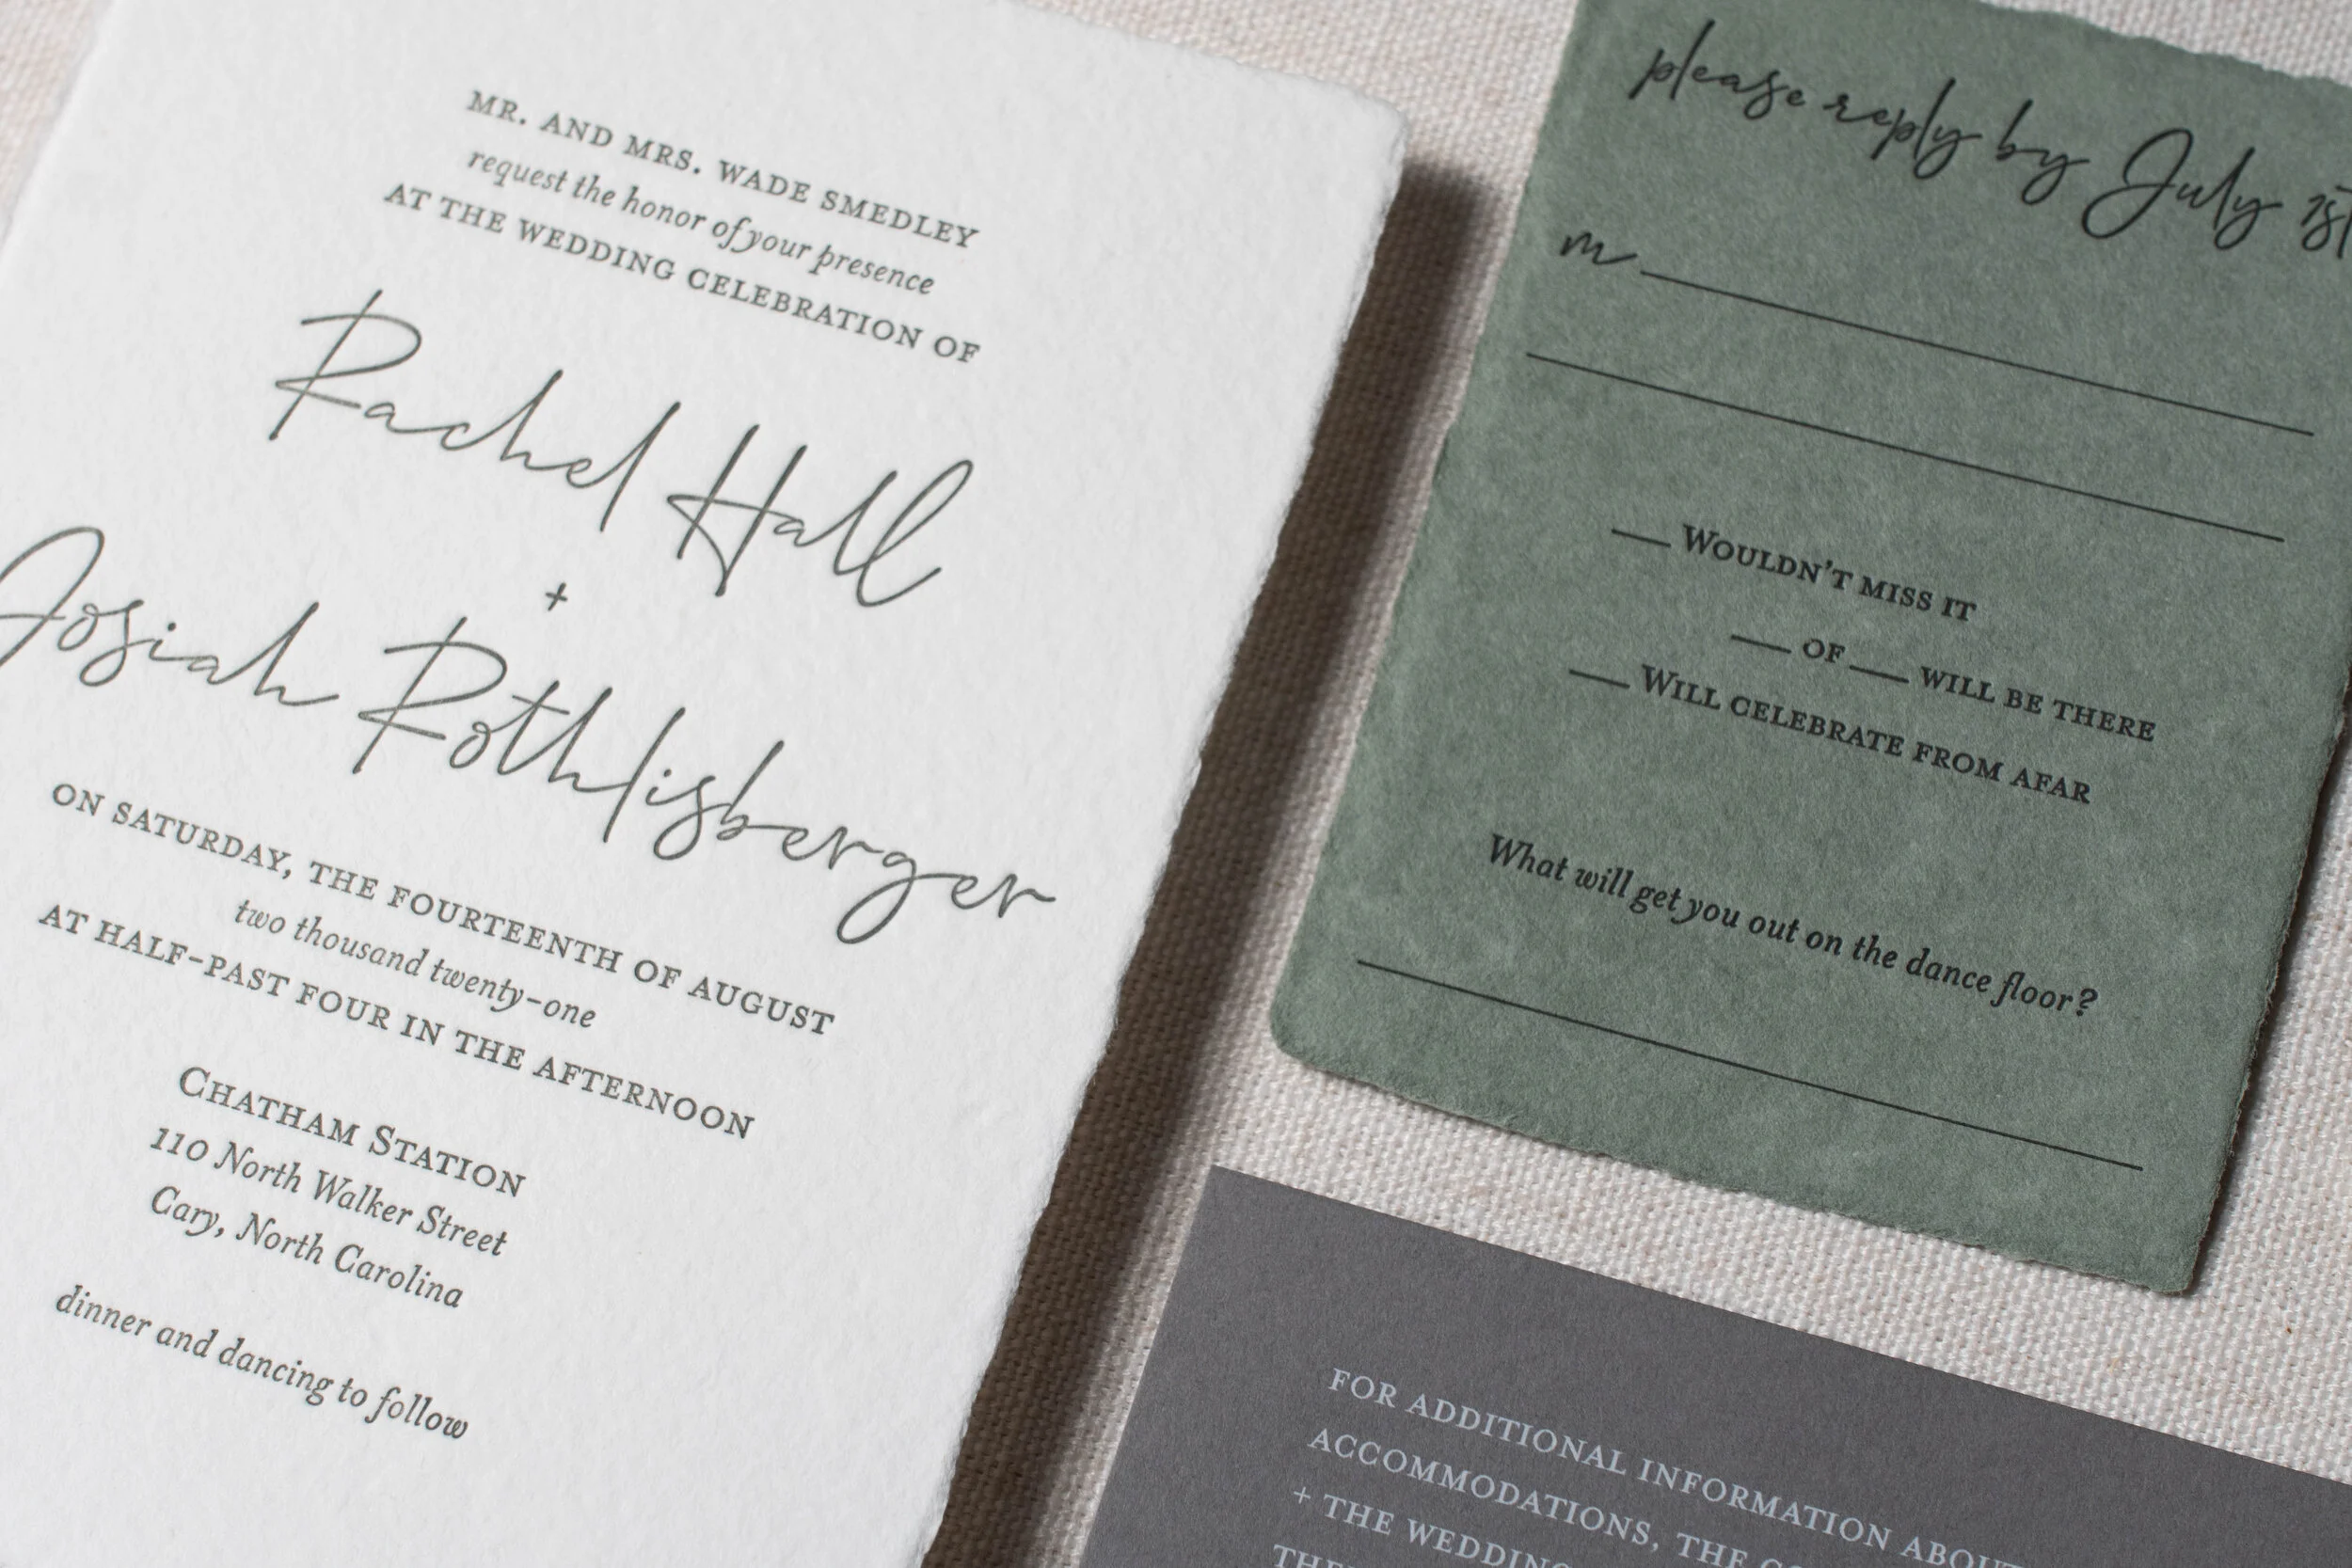 MR. AND MRS. WADE SMEDLEY
request the honor of your presence
AT THE WEDDING CELEBRATION OF
Rachel Hall
+
Josiah Rothlisberger
ON SATURDAY, THE FOURTEENTH OF AUGUST
two thousand twenty-one
AT HALF-PAST FOUR IN THE AFTERNOON
CHATHAM STATION
110 North Walker Street
Cary, North Carolina
dinner and dancing to follow
please reply by July 1st
m
WOULDN'T MISS IT
OF WILL BE THERE
WILL CELEBRATE FROM AFAR
What will get you out on the dance floor?
FOR ADDITIONAL INFORMATION ABOUT
ACCOMMODATIONS, THE
+ THE WEDDING